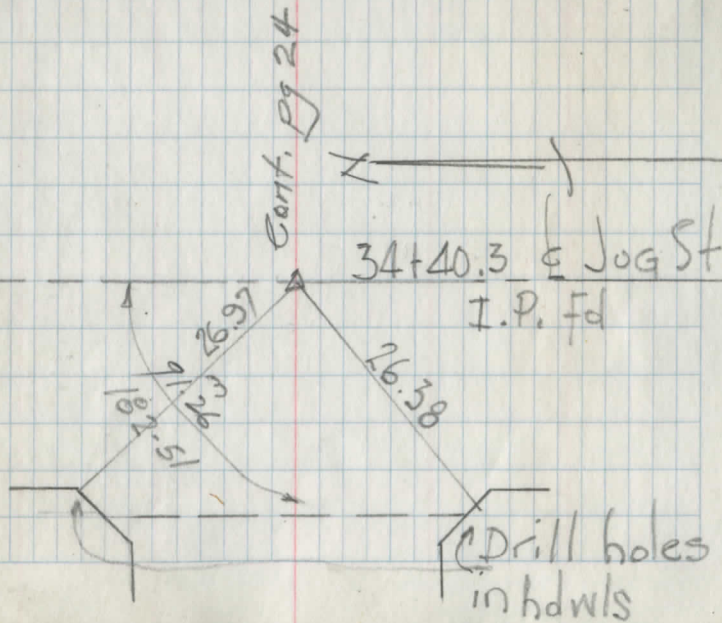 Cont. Pg 24
34+40.3 ℄ Jog St
I.P. Fd
26.97
26.38
Drill holes
in hdwls